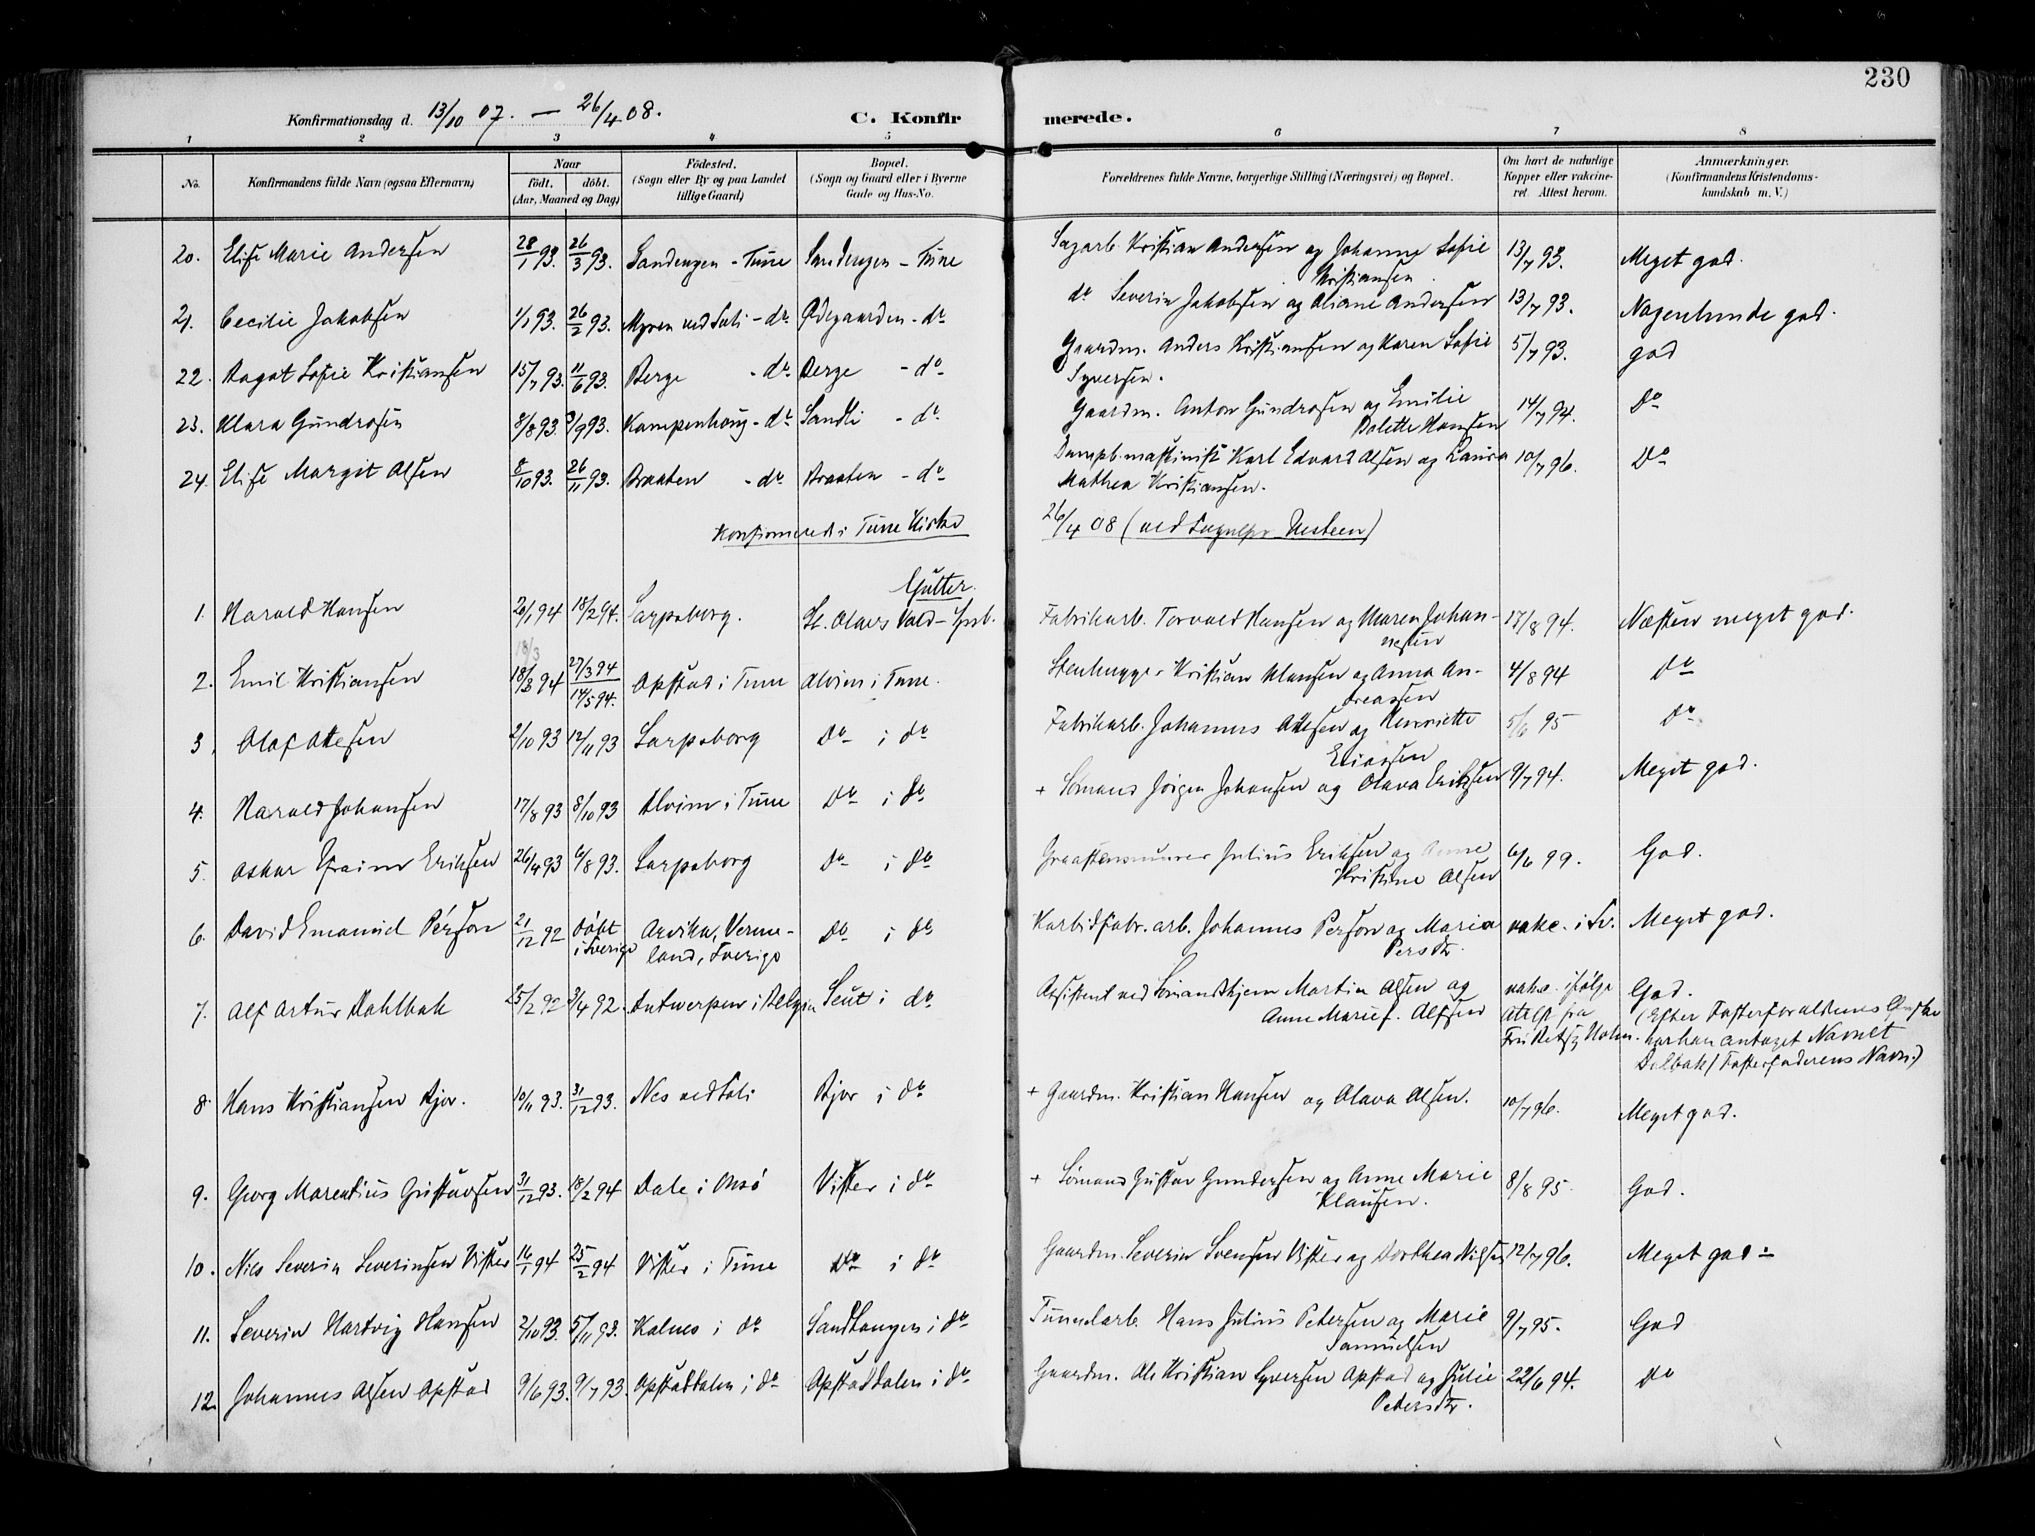 230
Konfirmationsdag d. 13/10 07. — 26/4 08.
C. Konfirmerede.
1 2 3 4 5 6 7 8
No. Konfirmandens fulde Navn (ogsaa Efternavn) Naar födt. döbt. (Aar, Maaned og Dag) Födested. (Sogn eller By og paa Landet tillige Gaard) Bopæl. (Sogn og Gaard eller i Byerne Gade og Hus-No. Forældrenes fulde Navne, borgerlige Stilling (Næringsvei) og Bopæl. Om havt de naturlige Kopper eller vakcineret. Attest herom. Anmærkninger. (Konfirmandens Kristendomskundskab m. V.)
20. Elise Marie Andersen 28/1 93. 26/3 93. Sandengen - Tune Sandengen - Tune Sagarb. Kristian Andersen og Johanne Sofie Kristiansen 13/7 93. Meget god.
21. Cecilie Jakobsen 1/1 93. 26/2 93. Myren ved Soli - do Ødegaarden - do do Severin Jakobsen og Oliane Andersen 13/7 93. Nogenlunde god.
22. Dagot Sofie Kristiansen 11/6 93. Berge - do Berge - do Gaardm. Anders Kristiansen og Karen Sofie Syversen. 5/7 93. god
23. Klara Gundrosen 8/8 93. 3/9 93. Kampenhoug - do Sandli - do Gaardm. Anton Gundrosen og Emilie Bolette Hansen 14/7 94. Do
24. Elise Margit Olsen 8/10 93. 26/11 93. Braaten - do Braaten - do Dampb.maskinist Karl Edvard Olsen og Laura Mathea Kristiansen. 10/7 96. Do
Konfirmered i Tune Kirke 26/4 08 (ved Sognepr. Uesteen)
Gutter.
1. Harald Hansen 2/1 94 18/2 94. Sarpsborg. St. Olavs Vold - Fabrikarb. Torvald Hansen og Maren Johannesen 17/8 94. Næsten meget god.
18/3
2. Emil Kristiansen 18/3 94 27/3 94 14/5 94. Opstad i Tune Alvim i Tune. Stenhugger Kristian Klausen og Anna Andreassen 4/8 94 do
3. Olaf Olesen 2/10 93 12/11 93 Sarpsborg Do i do Fabrikarb. Johannes Olesen og Henriette Eliassen 5/6 95 do
4. Harald Johansen 17/8 93 8/10 93 Alvim i Tune Do i do + Sømand Jörgen Johansen og Olava Eriksen 9/7 94. Meget god.
5. Oskar Efraim Eriksen 26/4 93 6/8 93. Sarpsborg do i do Graastensmurer Julius Eriksen og Anne Kristine Olsen 6/6 99. God.
6. David Emanuel Person 21/12 92 Döbt i Sverige Arvika, Vermeland, Sverige do i do Karbidfabr.arb. Johannes Person og Maria Persdtr. vakc. i Sv. Meget god.
7. Alf Artur Dahlbak 25/2 92 3/4 92. Antwerpen i Belgien Seut i do Assistent ved Sömandshjem Martin Olsen og Anne Marie f. Alfsen vakc. ifölge Attest fra God. (Efter Fosterforældrenes Ønske har han antaget Navnet Dalbak (Fosterfaderens Navn.)
8. Hans Kristiansen Bjor. 10/11 93. 31/12 93. Nes ved Soli Bjor i do + Gaardm. Kristian Hansen og Olava Olsen. 10/7 96. Meget god.
9. Georg Marentius Gustavsen 31/12 93. 18/2 94 Dale i Onsö Vister i do + Sømand Gustav Gundersen og Anne Marie Klausen. 8/8 95. God.
10. Nils Severin Severinsen Vister 16/1 94 25/2 94 Vister i Tune Do i do Gaardm. Severin Svensen Vister og Dorthea Nilsen 12/7 96. Meget god
11. Severin Hartvig Hansen 2/10 93. 5/11 93. Kalnes i do Sandtangen i do Tunnelarb. Hans Julius Petersen og Marie Samuelsen 9/7 95. God
12. Johannes Olsen Opstad 9/6 93. 9/7 93. Opstaddalen i do Opstaddalen i do Gaardm. Ole Kristian Syversen Opstad og Julie Petersdtr. 22/6 94. do